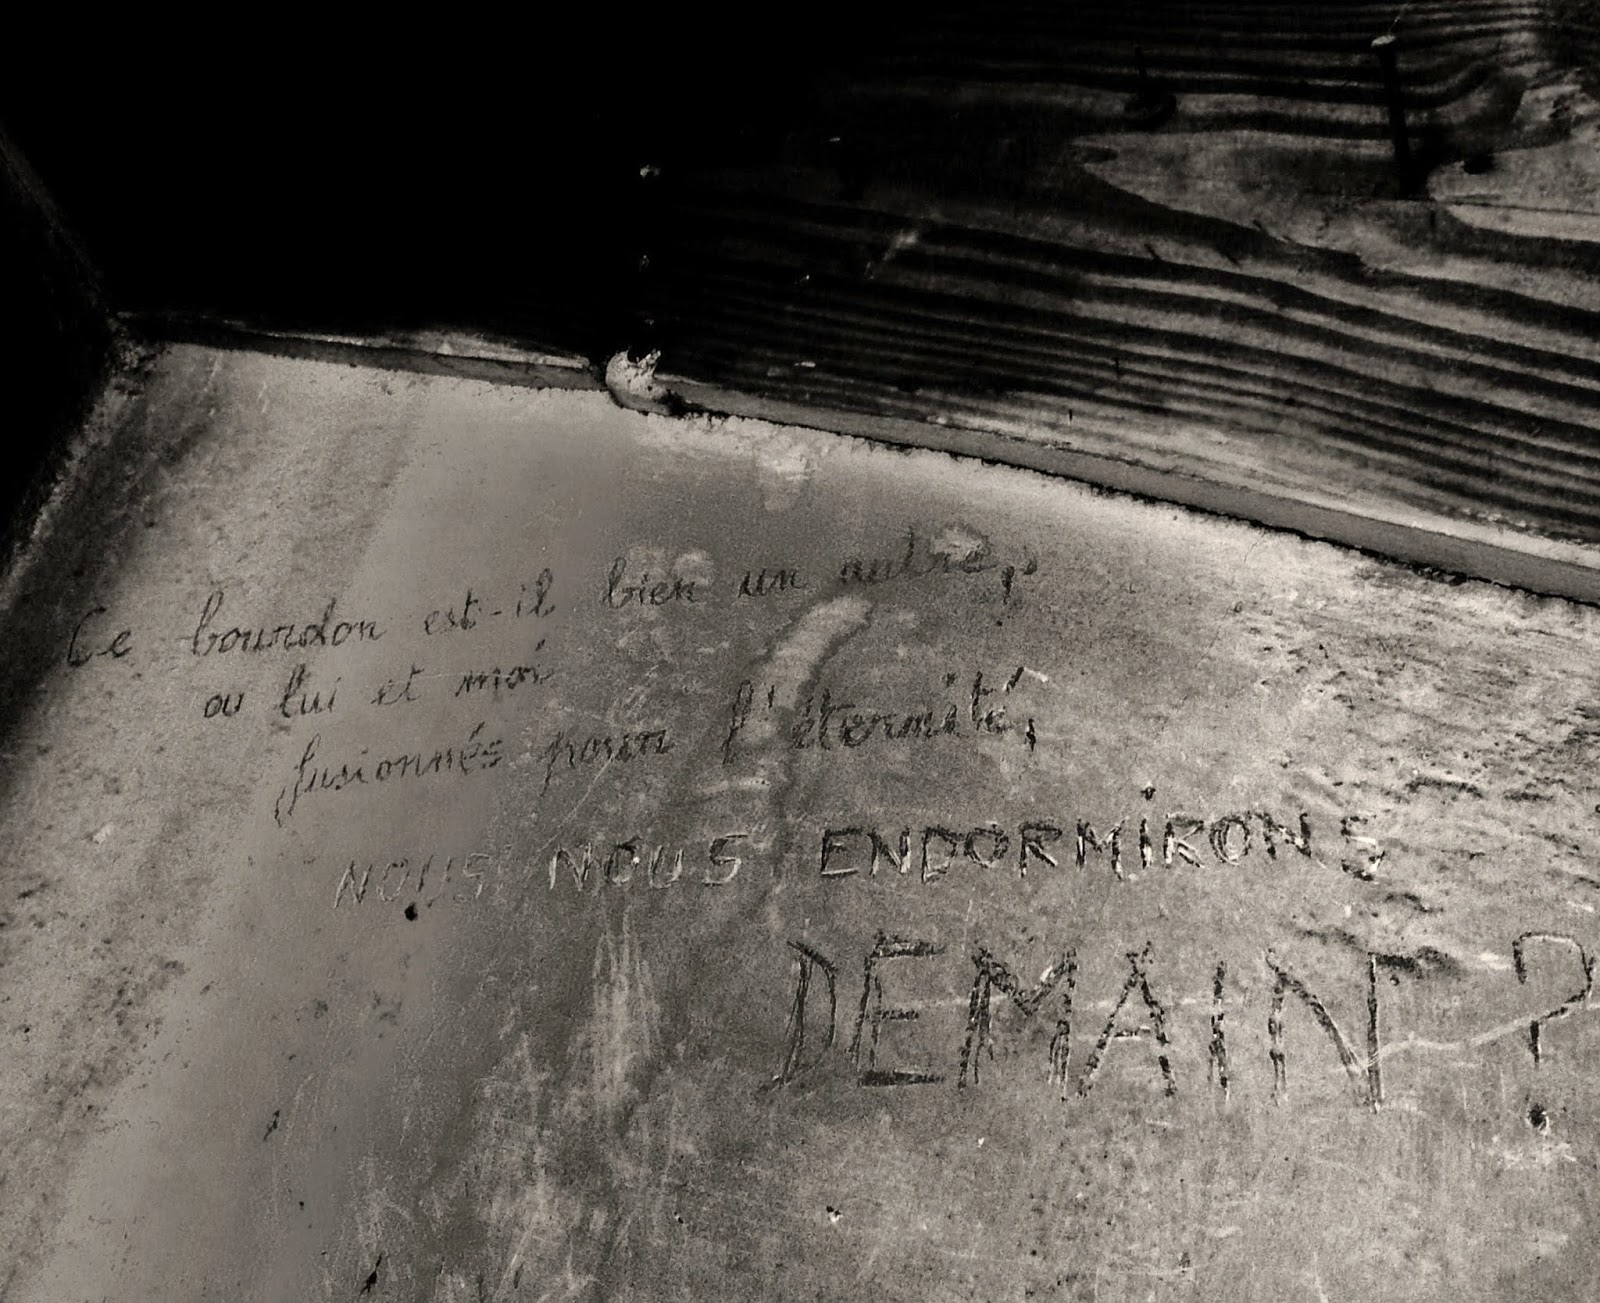 Ce bourdon est-il bien un autre,
ou lui et moi
fusionnés pour l'éternité,
NOUS NOUS ENDORMIRONS
DEMAIN ?